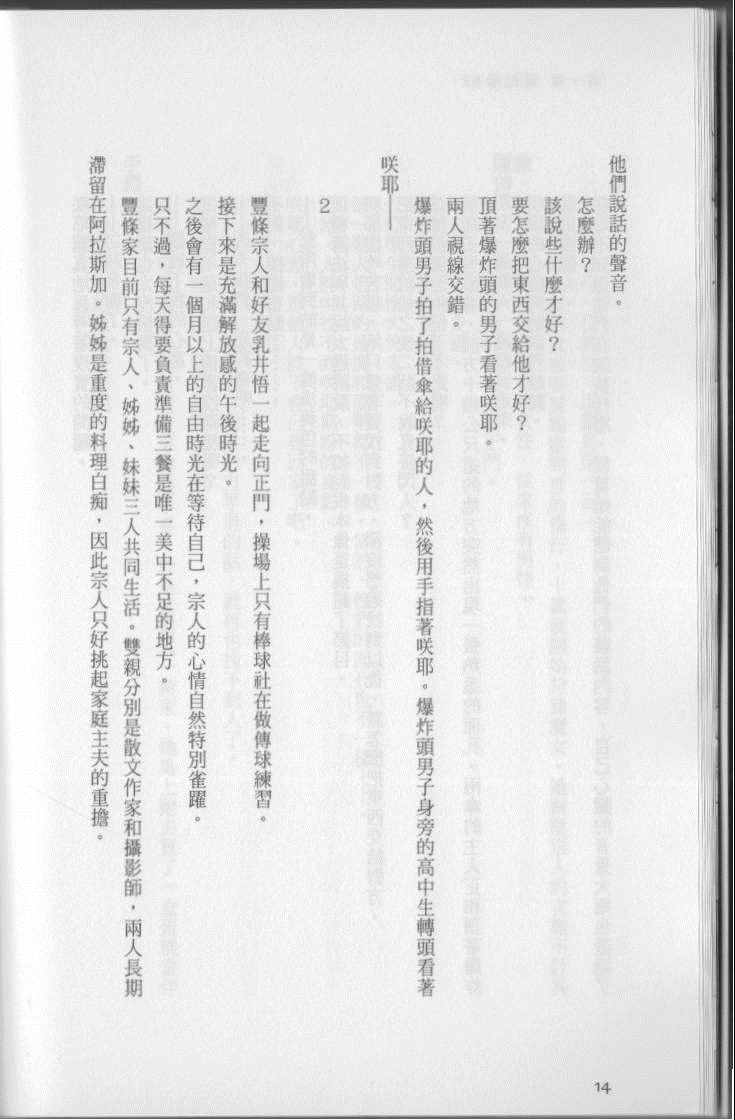 他們說話的聲音。
怎麼辦？
該說些什麼才好？
要怎麼把東西交給他才好？
頂著爆炸頭的男子看著咲耶。
兩人視線交錯。
爆炸頭男子拍了拍借傘給咲耶的人，然後用手指著咲耶。爆炸頭男子身旁的高中生轉頭看著
咲耶——
2
豐條宗人和好友乳井悟一起走向正門，操場上只有棒球社在做傳球練習。
接下來是充滿解放感的午後時光。
之後會有一個月以上的自由時光在等待自己，宗人的心情自然特別雀躍。
只不過，每天得要負責準備三餐是唯一美中不足的地方。
豐條家目前只有宗人、姊姊、妹妹三人共同生活。雙親分別是散文作家和攝影師，兩人長期
滯留在阿拉斯加。姊姊是重度的料理白痴，因此宗人只好挑起家庭主夫的重擔。
14